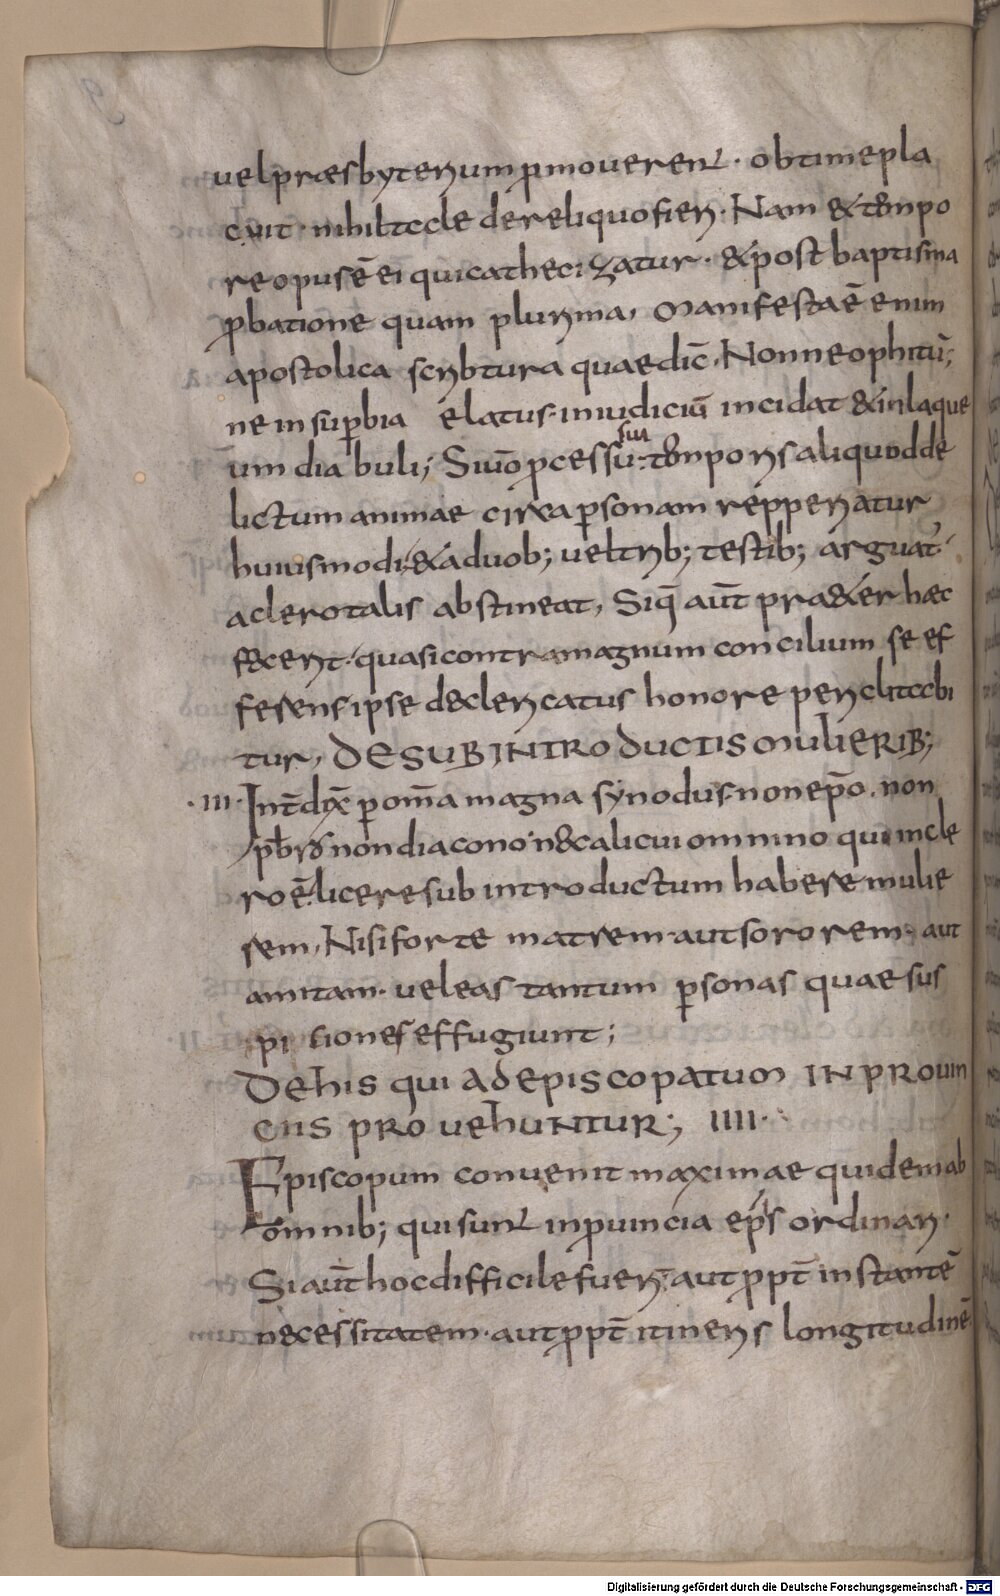 uelpræsbyterum pmouerent · obtime pla
cuit · nihil tale de reliquo fieri · Nam & tempo
re opus ē ei qui catheci zatur · & post baptisma
pbatione quam plurima, Manifesta ē enim
apostolica scribtura quae dic̄ · Non neophitū;
ne in supbia elatus · in iudiciū incidat & in laque
um dia buli; Siu̅o pcessu · temporis aliquod de
sui
lictum animae circa psonam repperiatur
huiusmodi · & a duob; uel trib; testib; arguat'
a clero talis abstineat, Siq̄ aūt pra&er hæc
fecerit · quasi contra magnum concilium se ef
ferens · ipse de clericatus honore periclitabi
tur, DE SUBINTRODUCTIS MULIERIB;
· III · Int̄dix̄ p om̄a magna synodus · non ep̄o · non
pb̄ro non diacono · n& alicui omnino qui in cle
ro ē · licere sub introductum habere mulie
rem, Nisi forte matrem · aut sororem · aut
amitam · uel eas tantum psonas quae sus
pi tiones effugiunt;
DE his qui ad episcopatum IN PROUIN
CIIS PROUEHUNTUR; IIII ·
Episcopum conuenit maximae quidem ab
omnib; qui sunt in puincia ep̄is ordinari ·
Si aūt hoc difficile fuerit · aut ppt̄ instantē
necessitatem · aut ppt̄ itineris longitudinē
Digitalisierung gefördert durch die Deutsche Forschungsgemeinschaft - DFG